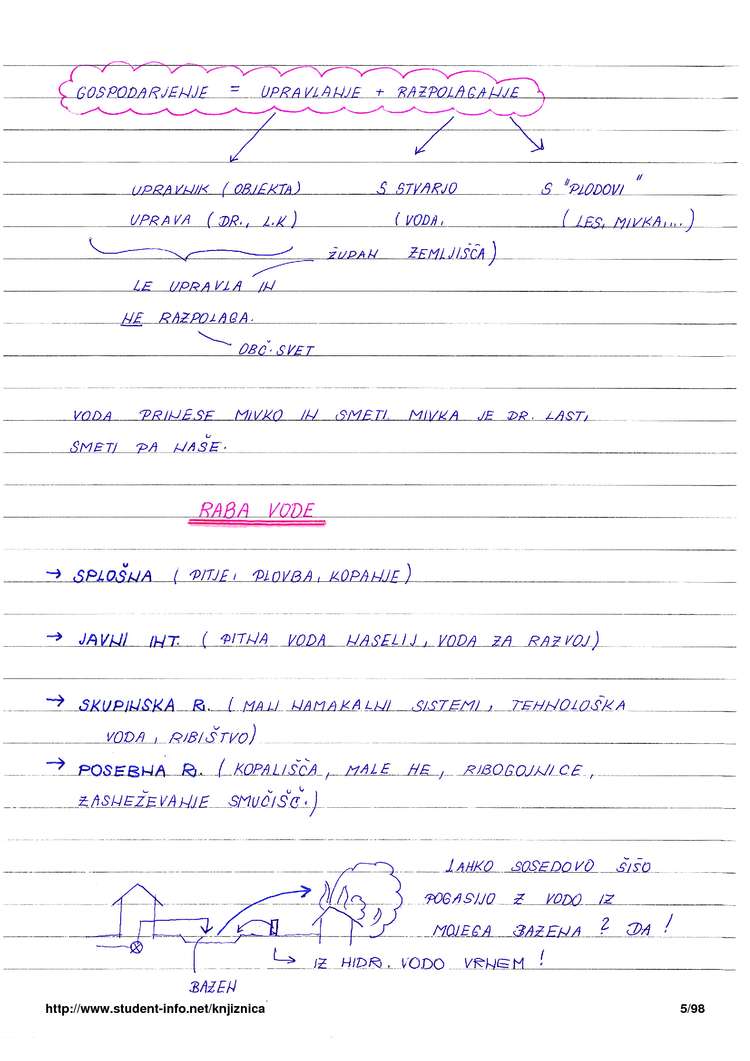 GOSPODARJENJE = UPRAVLANJE + RAZPOLAGANJE
UPRAVNIK (OBJEKTA) S STVARJO S "PLODOVI"
UPRAVA (DR., L.K) (VODA, (LES, MIVKA,...)
ŽUPAN ZEMLJIŠČA)
LE UPRAVLA IN
NE RAZPOLAGA.
OBČ. SVET
VODA PRINESE MIVKO IN SMETI. MIVKA JE DR. LAST,
SMETI PA NAŠE.
RABA VODE
→ SPLOŠNA (PITJE, PLOVBA, KOPANJE)
→ JAVNI INT. (PITNA VODA NASELIJ, VODA ZA RAZVOJ)
→ SKUPINSKA R. (MALI NAMAKALNI SISTEMI, TEHNOLOŠKA
VODA, RIBIŠTVO)
→ POSEBNA R. (KOPALIŠČA, MALE HE, RIBOGOJNICE,
ZASNEŽEVANJE SMUČIŠČ.)
LAHKO SOSEDOVO ŠIŠO
POGASIJO Z VODO IZ
MOJEGA BAZENA? DA!
IZ HIDR. VODO VRNEM!
BAZEN
http://www.student-info.net/knjiznica 5/98